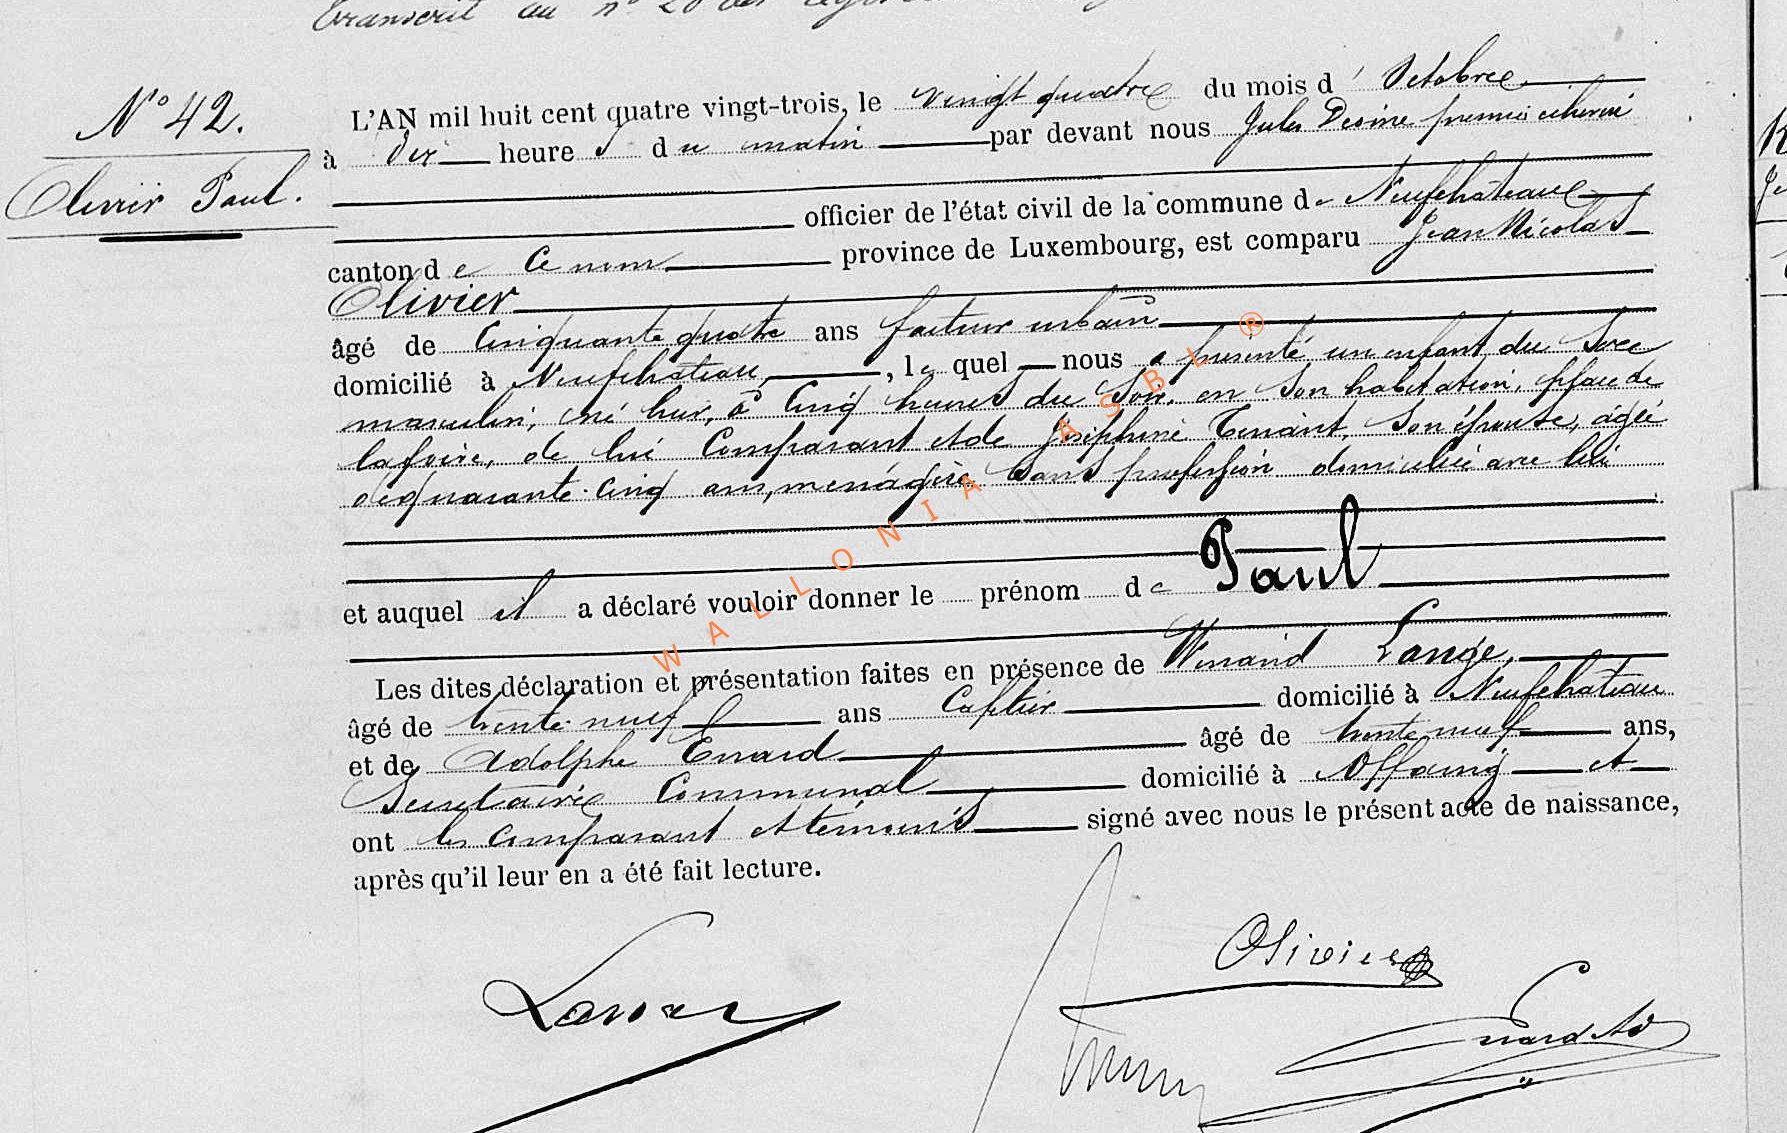 transcrit au n° 20 des
N° 42.
Olivier Paul.
L'AN mil huit cent quatre vingt-trois, le vingt quatre du mois d' Octobre
à dix heure s du matin par devant nous Jules premier échevin
officier de l'état civil de la commune de Neufchâteau
canton de ce nom province de Luxembourg, est comparu Jean Nicolas
Olivier
âgé de Cinquante quatre ans facteur urbain
domicilié à Neufchateau, , le quel nous a présenté un enfant du sexe
masculin, né hier, à Cinq heures du Soir, en Son habitation, place de
la foire, de lui Comparant et de Joséphine Son épouse, âgée
de quarante-cinq ans, ménagère Sans profession domiciliée avec lui
et auquel il a déclaré vouloir donner le prénom de Paul
Les dites déclaration et présentation faites en présence de Lange,
âgé de trente-neuf ans domicilié à Neufchateau
et de Adolphe Enard âgé de trente neuf ans,
Secrétaire Communal domicilié à Offaing et
ont les comparant et témoins signé avec nous le présent acte de naissance,
après qu'il leur en a été fait lecture.
Olivier
Enard Ad
WALLONIA ASBL ®